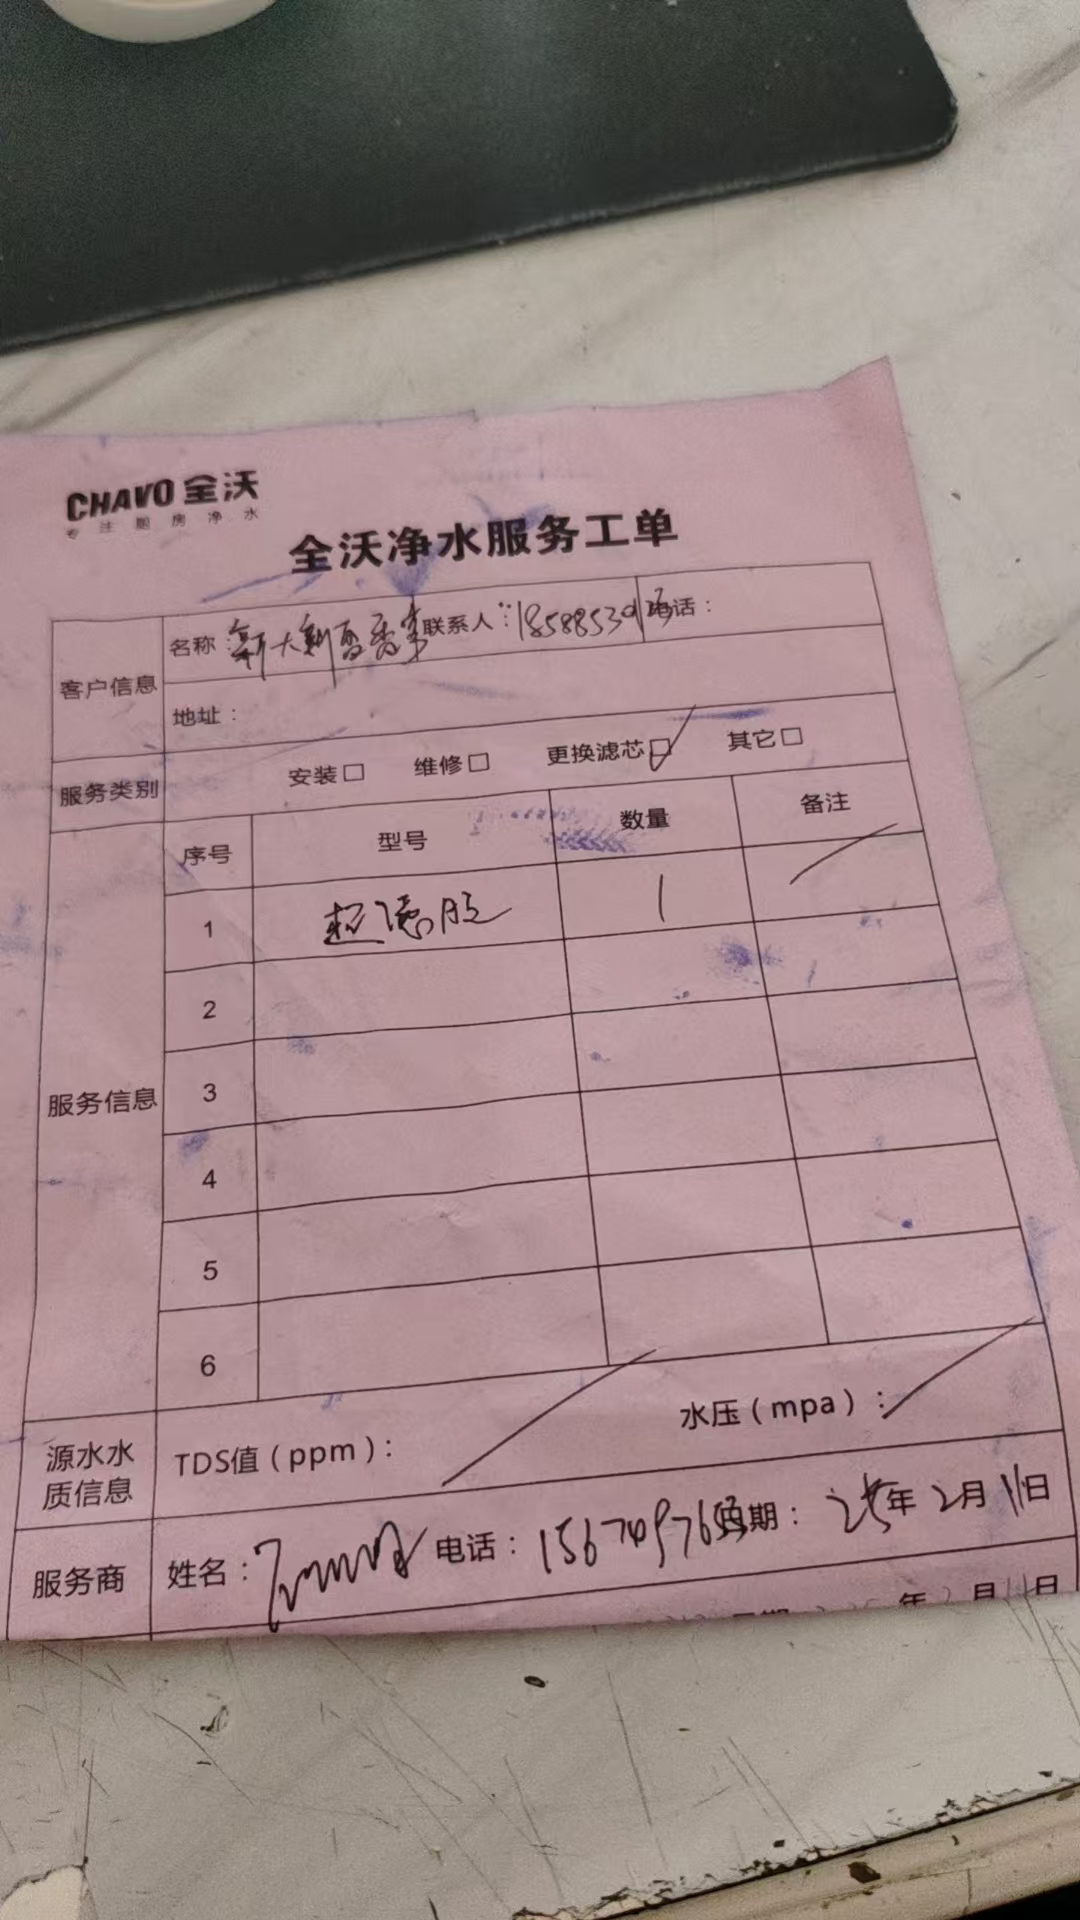 CHAVO 全沃
专注厨房净水
全沃净水服务工单
客户信息
名称：新大新 联系人：18588539 电话：
地址：
服务类别
安装□ 维修□ 更换滤芯☑ 其它□
服务信息
序号 型号 数量 备注
1 1
2
3
4
5
6
源水水质信息
TDS值（ppm）： 水压（mpa）：
服务商
姓名： 电话：15674976 日期：25年2月11日
年 月11日